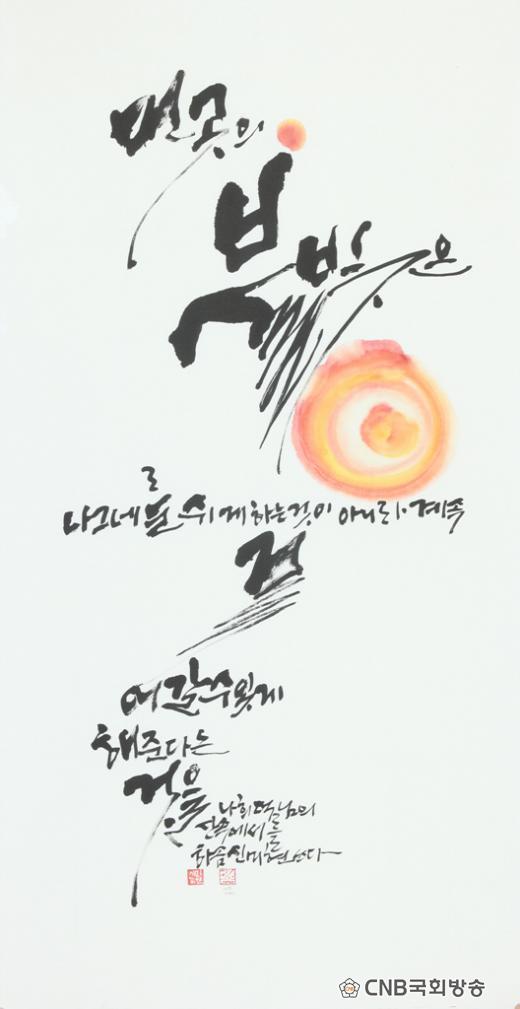 먼곳의
불빛은
나그네를 쉬게하는것이 아니라·계속
걸
어갈수있게
해준다는
것을
나희덕님의
산속에서를
화음신미현쓰다
CNB국회방송